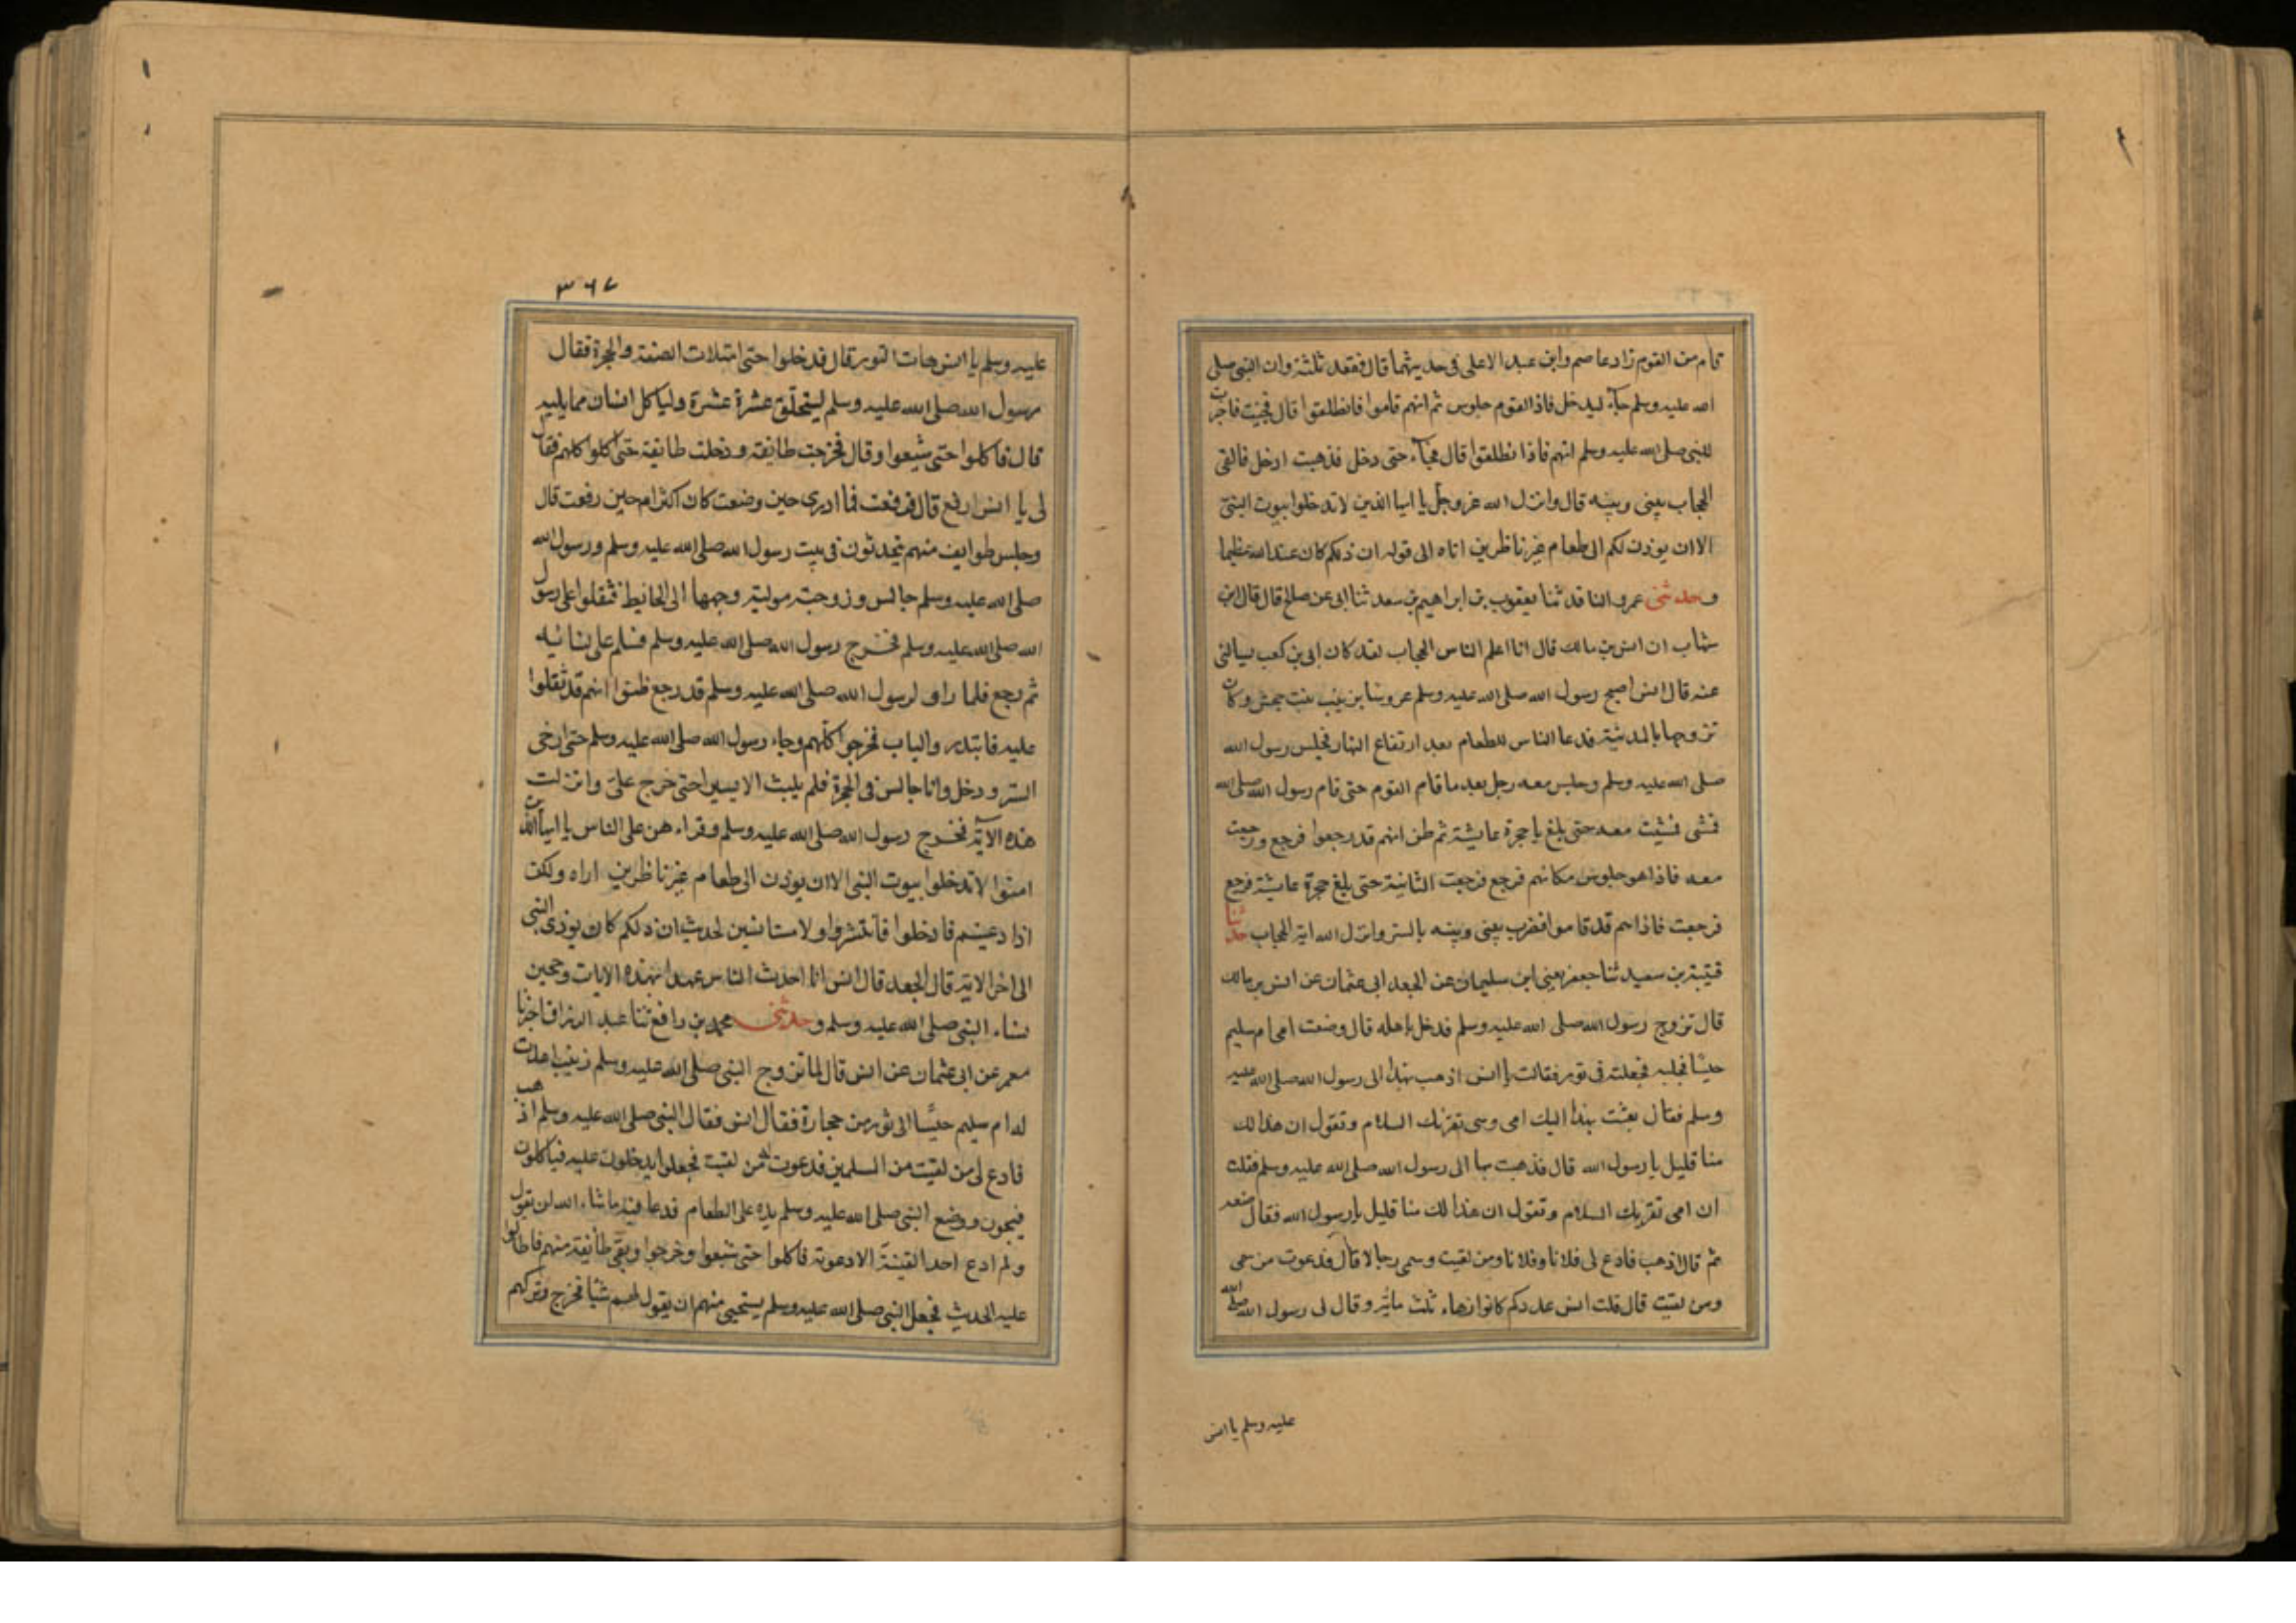 قام من القوم زاد عاصم وابن عبد الاعلى فى حديثهما قال فقعد ثلثة وان النبى صلى
الله عليه وسلم جآء ليدخل فاذا القوم جلوس ثم انهم قاموا فانطلقوا قال فجئت فاخبرت
للنبى صلى الله عليه وسلم انهم فاذا نطلقوا قال فجآء حتى دخل فذهبت ادخل فالقى
الحجاب بينى وبينه قال وانزل الله عز وجل يا ايها الذين لا تدخلوا بيوت النبى
الا ان يوذن لكم الى طعام غير ناظرين اناه الى قوله ان ذلكم كان عند الله عظيما
وحدثنى عمرو الناقد ثنا يعقوب بن ابراهيم بن سعد ثنا ابى عن صالح قال قال ابن
شهاب ان انس بن مالك قال انا اعلم الناس الحجاب لقد كان ابى بن كعب يسالنى
عنه قال انس اصبح رسول الله صلى الله عليه وسلم عروسا بزينب بنت جحش وكان
تزوجها بالمدينة فدعا الناس للطعام بعد ارتفاع النهار فجلس رسول الله
صلى الله عليه وسلم وجلس معه رجل بعد ما قام القوم حتى قام رسول الله صلى الله
فمشى فمشيت معه حتى بلغ با حجرة عايشة ثم ظن انهم قد رجعوا فرجع ورجعت
معه فاذا هو جلوس مكانهم فرجع فرجعت الثانية حتى بلغ حجرة عايشة فرجع
فرجعت فاذا هم قد قاموا فضرب بينى وبينه بالستر وانزل الله اية الحجاب حدثنا
قتيبة بن سعيد ثنا جعفر يعنى ابن سليمان عن الجعد ابى عثمان عن انس بن مالك
قال تزوج رسول الله صلى الله عليه وسلم فدخل باهله قال وضعت امى ام سليم
حيسًا فجلبه فجعلته فى تور فقالت يا انس اذهب بهذا الى رسول الله صلى الله عليه
وسلم فقال بعثت بهذا اليك امى وسى تقرئك السلام وتقول ان هذا لك
منا قليل يا رسول الله قال فذهبت بها الى رسول الله صلى الله عليه وسلم فقلت
ان امى تقريك السلام وتقول ان هذا لك منا قليل يا رسول الله فقال ضعه
ثم قال اذهب فادع لى فلانا وفلانا ومن لقيت وسمى رجالا قال فدعوت من سمى
ومن لقيت قال قلت انس عددكم كانوا زهاء ثلث ماية وقال لى رسول الله صلى الله
عليه وسلم يا انس
٣٦٧
عليه وسلم يا انس هات التور قال فدخلوا حتى امتلات الصفة والحجرة فقال
رسول الله صلى الله عليه وسلم ليتحلّق عشرة عشرة ولياكل انسان مما يليه
قال فاكلوا حتى شبعوا وقال فخرجت طايفة ودخلت طايفة حتى اكلوا كلهم فقال
لى يا انس ارفع قال فرفعت فما ادرى حين وضعت كان اكثر ام حين رفعت قال
وجلس طوايف منهم يتحدثون فى بيت رسول الله صلى الله عليه وسلم ورسول الله
صلى الله عليه وسلم جالس وزوجته مولية وجهها الى الحايط فثقلوا على رسول
الله صلى الله عليه وسلم فخرج رسول الله صلى الله عليه وسلم فسلم على نسائه
ثم رجع فلما راو لرسول الله صلى الله عليه وسلم قد رجع ظنوا انهم قد ثقلوا
عليه فابتدر والباب فخرجوا كلهم وجاء رسول الله صلى الله عليه وسلم حتى ارخى
الستر ودخل وانا جالس فى الحجرة فلم يلبث الا يسيرا حتى خرج علىّ وانزلت
هذه الآية فخرج رسول الله صلى الله عليه وسلم وقراء هن على الناس يا ايها الذين
امنوا لا تدخلوا بيوت النبى الا ان يوذن الى طعام غير ناظرين اراه ولكن
اذا دعيتم فادخلوا فانتشروا ولا مستانسين لحديث ان ذلكم كان يوذى النبى
الى اخر الاية قال الجعد قال انس انا احدث الناس عهدا بهذه الايات وحجبن
نساء النبى صلى الله عليه وسلم وحدثنى محمد بن رافع ثنا عبد الرزاق اخبرنا
معمر عن ابى عثمان عن انس قال لما تزوج النبى صلى الله عليه وسلم زينب اهدت
له ام سليم حيسًا الى ثور من حجارة فقال انس فقال النبى صلى الله عليه وسلم اذهب
فادع لى من لقيت من المسلمين فدعوت له من لقيت فجعلوا يدخلون عليه فياكلون
فيجون ووضع النبى صلى الله عليه وسلم يده على الطعام فدعا فيه ما شاء الله ان يقول
ولم ادع احدا لقيته الا دعوته فاكلوا حتى شبعوا وخرجوا وبقى طايفة منهم فاطالوا
عليه الحديث فجعل النبى صلى الله عليه وسلم يستحيى منهم ان يقول لهم شيا فخرج وتركهم